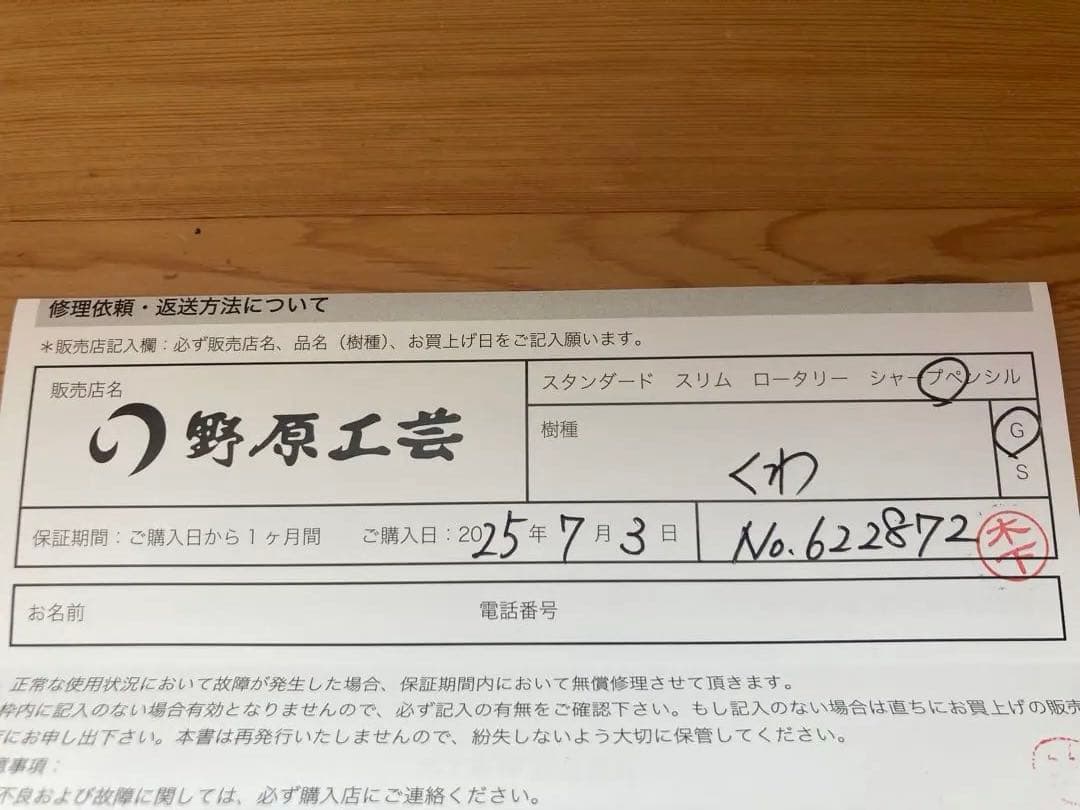 修理依頼・返送方法について
＊販売店記入欄：必ず販売店名、品名（樹種）、お買上げ日をご記入願います。
販売店名
野原工芸
スタンダード スリム ロータリー シャープペンシル
樹種
くわ
G
S
保証期間：ご購入日から1ヶ月間 ご購入日：2025年7月3日
No.622872
木下
お名前 電話番号
正常な使用状況において故障が発生した場合、保証期間内において無償修理させて頂きます。
枠内に記入のない場合有効となりませんので、必ず記入の有無をご確認下さい。もし記入のない場合は直ちにお買上げの販売
にお申し出下さい。本書は再発行いたしませんので、紛失しないよう大切に保管してください。
意事項：
不良および故障に関しては、必ず購入店にご連絡ください。